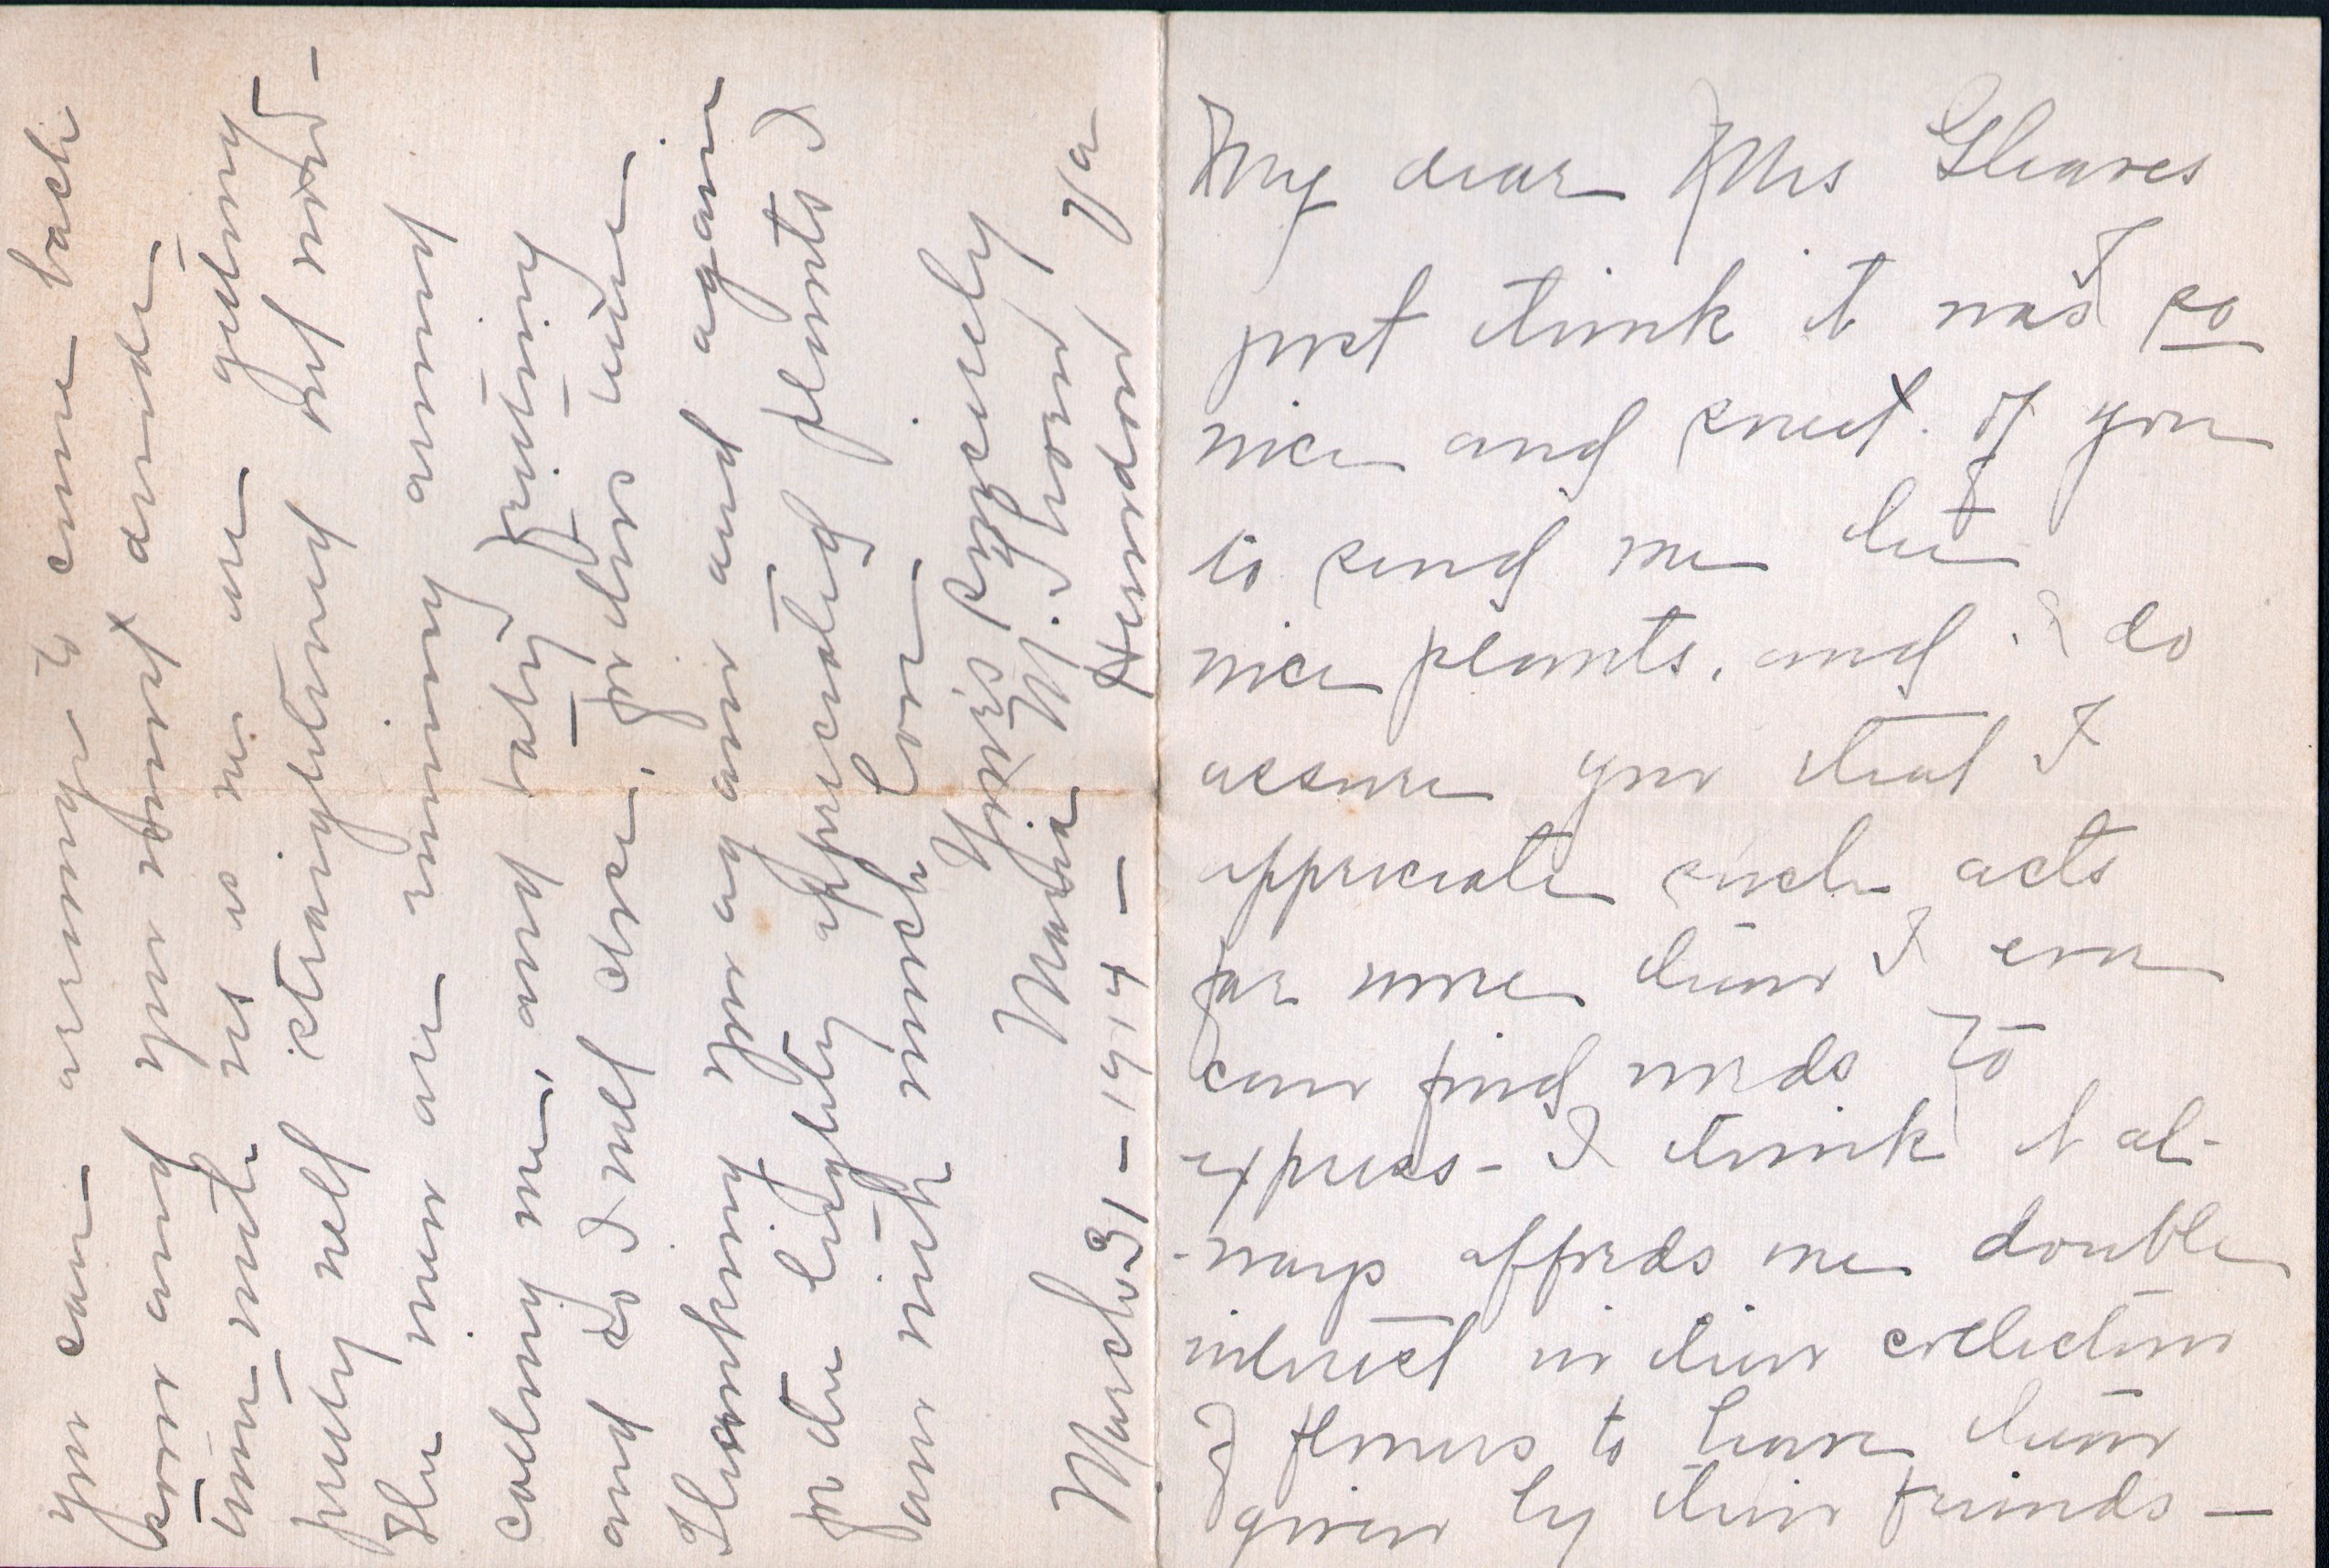 My dear Mrs Gleaves
I
just think it was so
nice and sweet of you
to send me the
nice plants, and I do
assure you that I
appreciate such acts
far more than I ever
can find words to
express - I think it al-
-ways affords me double
interest in their collection
of flowers to have them
given by their friends -
you can arrange to come back
soon and you wont
time with us is we are getting
pretty well straightened out now -
The men are running around
calling me, and Patsy
and so I will close, for this time
Thanking you again and again
for the highly appreciated plants I
am with much love
Yours sincerely
Maria M. Thom
Herndon Va
March 31 - 1914 -